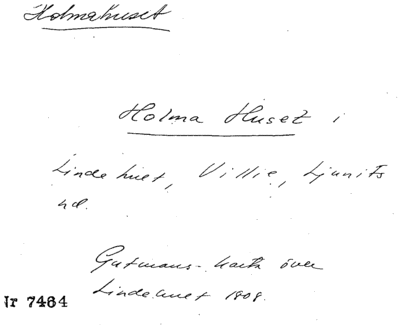 Holmahuset
Holma Huset i
Lindehuset, Villie, Ljunits
hd.
Gutmans karta över
Lindehuset 1808.
Nr 7464